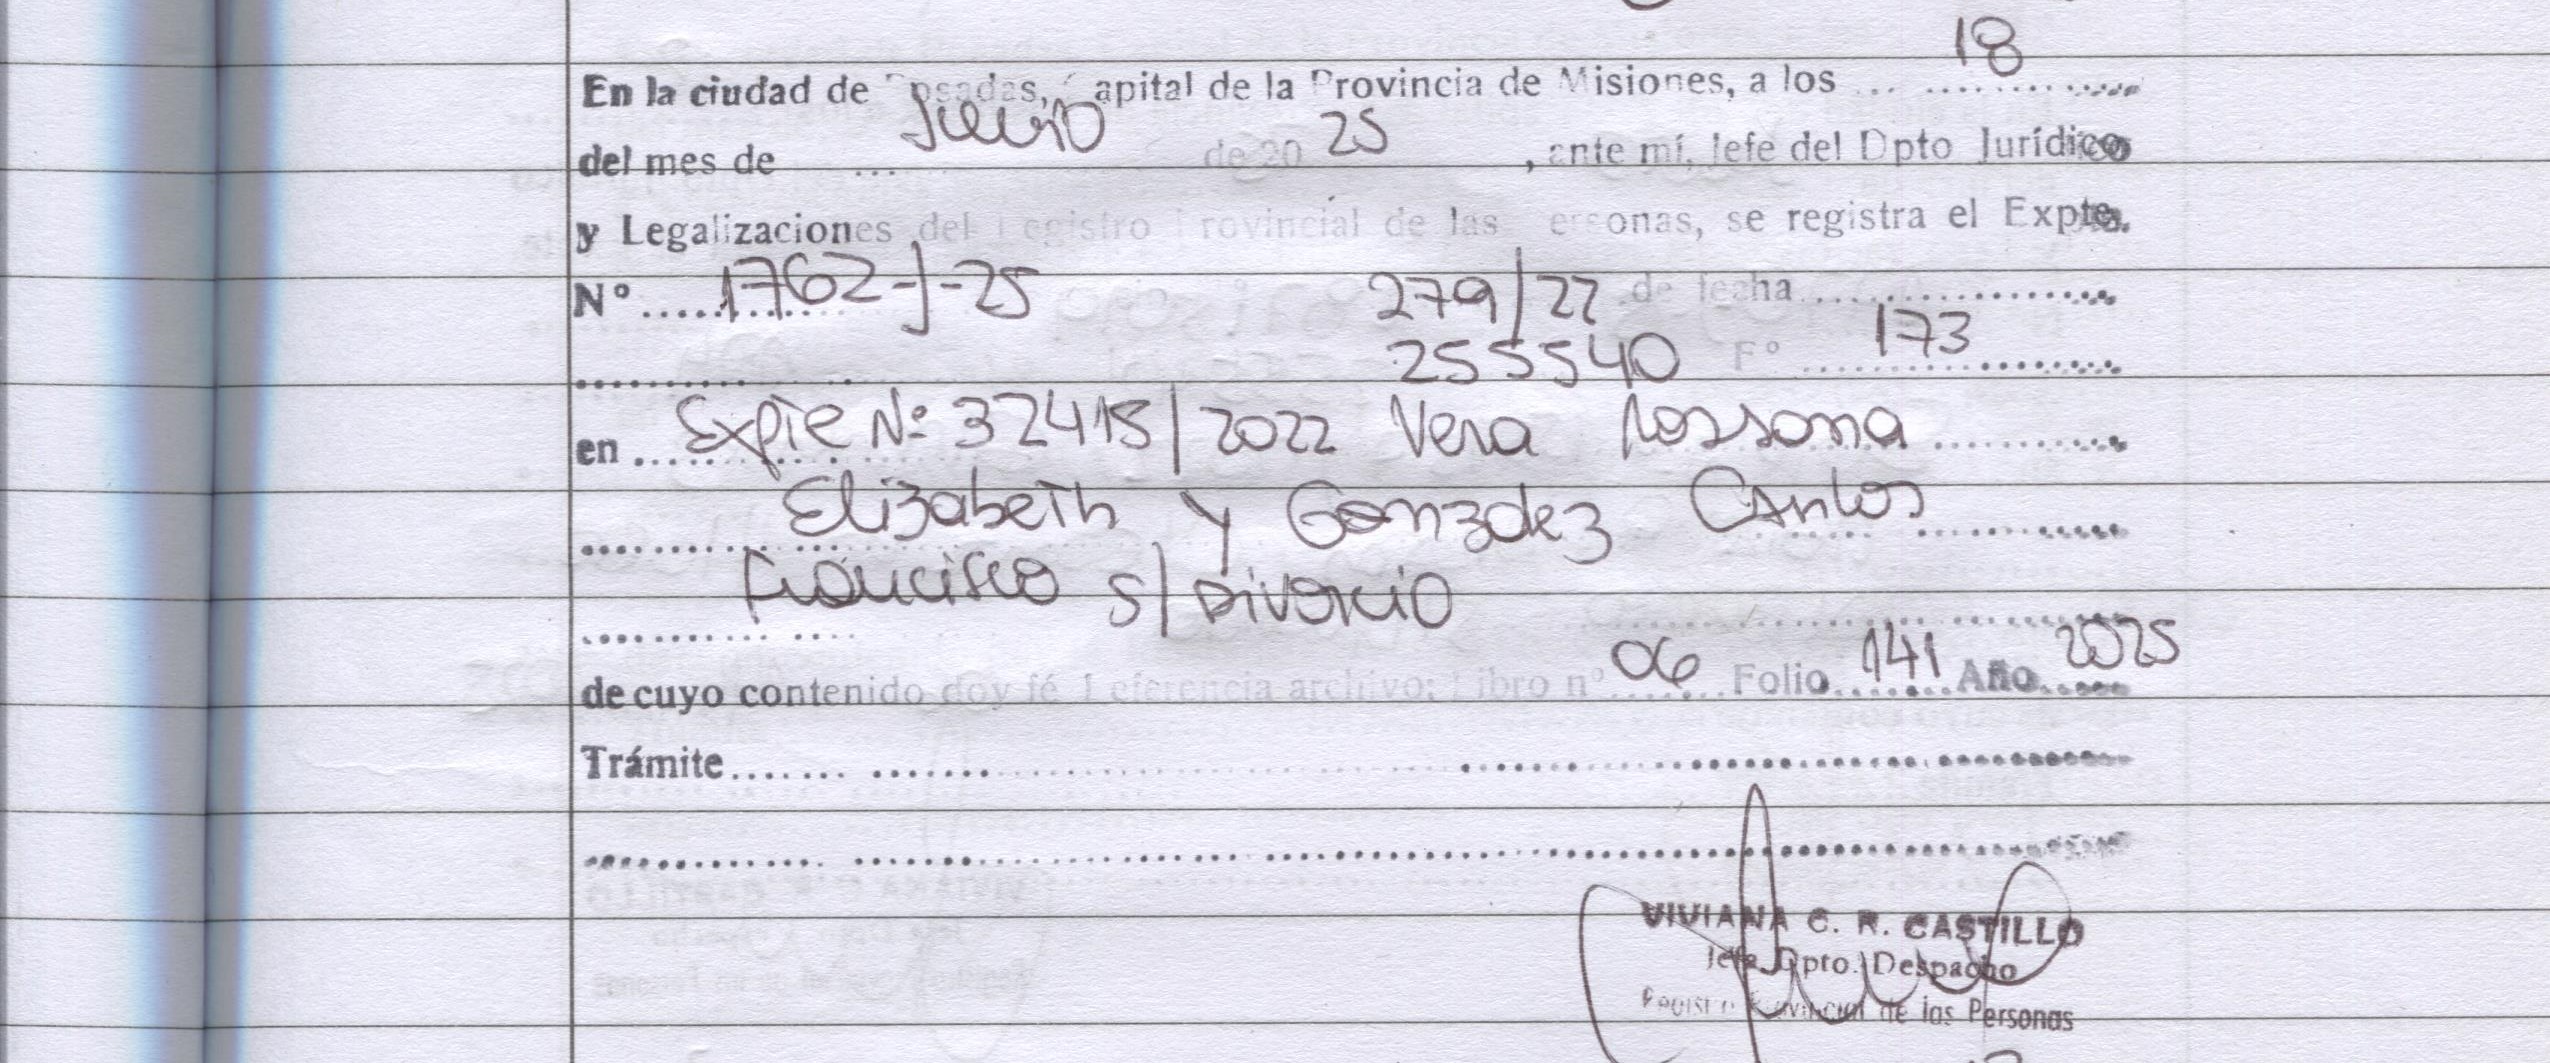 18
En la ciudad de Posadas, Capital de la Provincia de Misiones, a los
del mes de Junio de 20 25, ante mí, Jefe del Dpto Jurídico
y Legalizaciones del Registro Provincial de las Personas, se registra el Expte.
Nº 1762-J-25 279/22 de fecha
255540 Fº 173
en Expte Nº 32415/2022 Vera Rossana
Elizabeth y Gonzalez Carlos
Francisco s/ Divorcio
de cuyo contenido doy fé Referencia archivo: Libro nº 06 Folio 141 Año 2025
Trámite
VIVIANA C. R. CASTILLO
Jefa Dpto. Despacho
Registro Provincial de las Personas